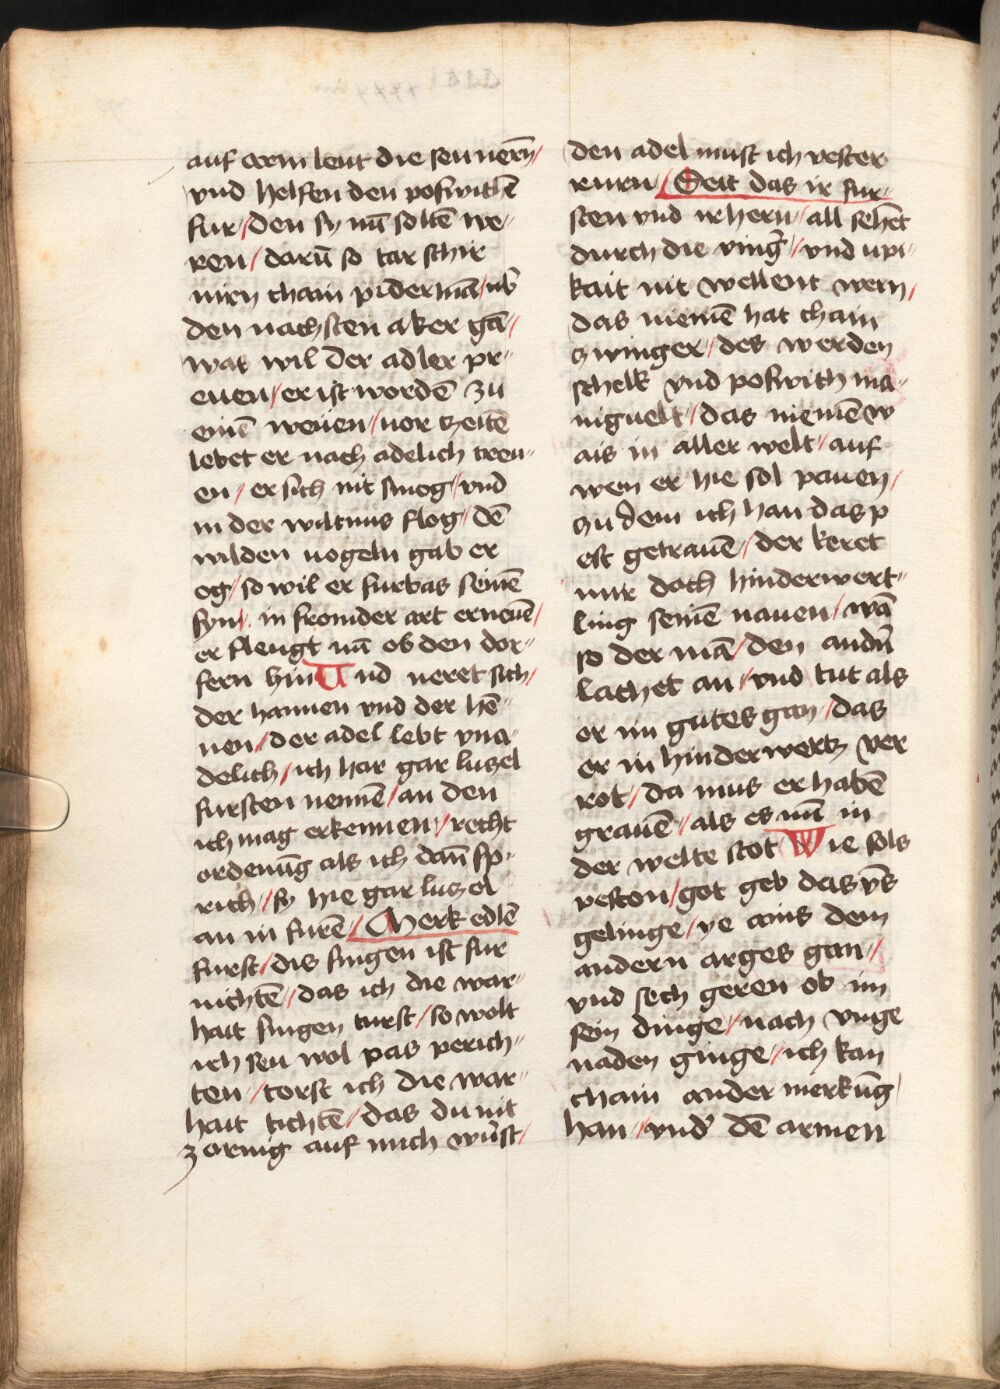 auf arm leut die seu nern/
vnd helfen den poswithē
fur/den sy nū soltē we-
ren/darū so tar schir
nirn chain piderman/ub̄
den nachsten aker gā/
wat wil der adler pr-
euen/er ist wordē zu
einē weuen/vor zeitē
lebet er nach adelich treu-
en/er sich nit smog/vnd
in der wiltnus flog/dē
wilden vogeln gab er
og/so wil er furbas seinē
syn/. in fromder art erneuē/
er fleugt nū ob den dor-
fern hin Vnd neret sich/
der hannen vnd der hē-
nen/der adel lebt vna-
delich/ich har gar luzel
fursten nennē/an den
ich mag erkennen/recht
ordenūg als ich dan sp-
rich/sy hie gar luzel
an in furē/Merk edlē
furst/dis singen ist fur
nichtē/das ich die war-
hait singen turst/so wolt
ich seu wol pas perich-
ten/torst ich die war-
hait tichtē/das du nit
zornig auf mich wurst/
den adel must ich vester
rurn/Seit das ir fur-
sten vnd ir hern/all sehēt
durch die vinḡ/vnd upi-
kait nit wellent wern/
das niemē hat chain
zwinger/des werden
schelk vnd poswith ma-
niguelt/das niemē w
ais in aller welt/auf
wen er hie sol pauen/
zu dem ich han das p
est getrauē/der keret
mir doch hinderwert-
ling seinē nauen/wā
so der mā/den andn̄
lachet an/vnd tut als
er im gutes gan/das
er in hinderwertz ver
rot/da mus er habē
grauē/als es nū in
der welte stot Wie sols
veston/got geb das vs̄
gelinge/ye ains dem
andern arges gan//
vnd sech geren ob im
sein dinge/nach vnge
naden ginge/ich kan
chain ander merkūg
han/vnd' dē armen